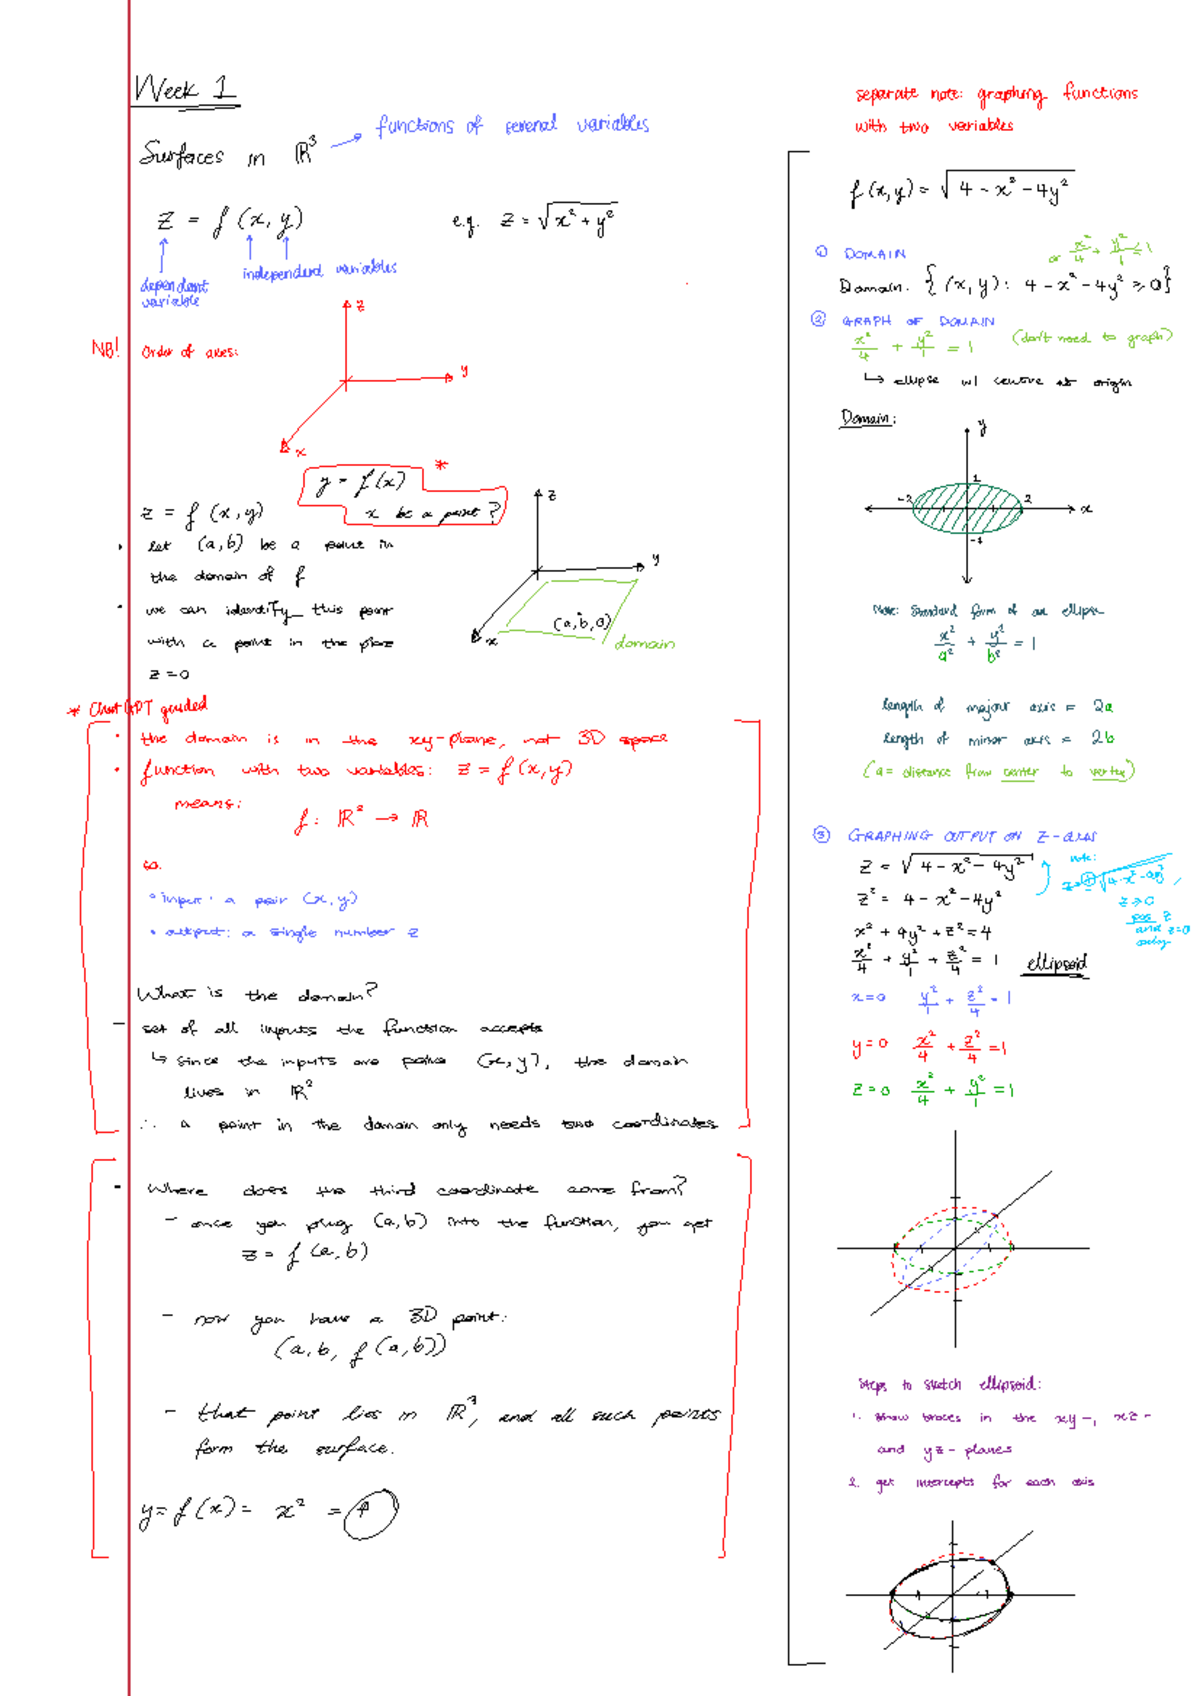 Week 1
Surfaces in ℝ³ → functions of several variables
z = f(x, y)
e.g. z = √(x² + y²)
dependent variable
independent variables
z
NB! Order of axes:
y
x
y = f(x) *
x be a point?
z = f(x, y)
• let (a, b) be a point in
the domain of f
• we can identify this point
with a point in the plane
z = 0
z
y
x
(a, b, 0)
domain
* ChatGPT guided
• the domain is in the xy-plane, not 3D space
• function with two variables: z = f(x, y)
means:
f: ℝ² → ℝ
so.
• input: a pair (x, y)
• output: a single number z
What is the domain?
– set of all inputs the function accepts
↳ since the inputs are pairs (x, y), the domain
lives in ℝ²
∴ a point in the domain only needs two coordinates
- Where does the third coordinate come from?
– once you plug (a, b) into the function, you get
z = f(a, b)
– now you have a 3D point:
(a, b, f(a, b))
– that point lies in ℝ³, and all such points
form the surface.
y = f(x) = x² =
separate note: graphing functions
with two variables
f(x, y) = √(4 − x² − 4y²)
① DOMAIN
or x²/4 + y²/1 ≤ 1
Domain: {(x, y): 4 − x² − 4y² ≥ 0}
② GRAPH OF DOMAIN
x²/4 + y²/1 = 1 (don't need to graph)
↳ ellipse w/ centre at origin
Domain:
y
1
-2 2 x
-1
Note: Standard form of an ellipse
x²/a² + y²/b² = 1
length of major axis = 2a
length of minor axis = 2b
(a = distance from center to vertex)
③ GRAPHING OUTPUT ON Z-AXIS
z = √(4 − x² − 4y²)
note:
z² = 4 − x² − 4y²
z ≥ 0
pos z
and z=0
only
x² + 4y² + z² = 4
x²/4 + y²/1 + z²/4 = 1 ellipsoid
x=0 y²/1 + z²/4 = 1
y=0 x²/4 + z²/4 = 1
z=0 x²/4 + y²/1 = 1
Steps to sketch ellipsoid:
1. show traces in the xy-, xz-
and yz-planes
2. get intercepts for each axis